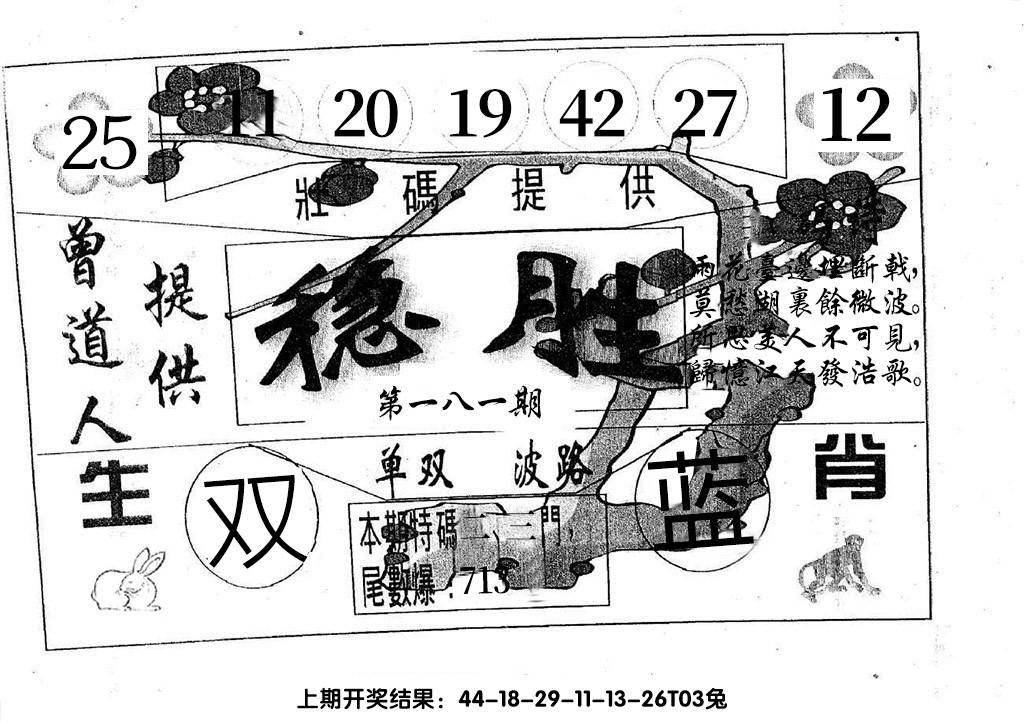 25 11 20 19 42 27 12
壯碼提供
曾道人
提供
稳胜
第一八一期
特
雨花臺邊埋斷戟,
莫愁湖裏餘微波。
所思美人不可見,
歸憶江天發浩歌。
单双 波路
生肖
双
蓝
本期特碼二、三門,
尾數爆:713
上期开奖结果:44-18-29-11-13-26T03兔